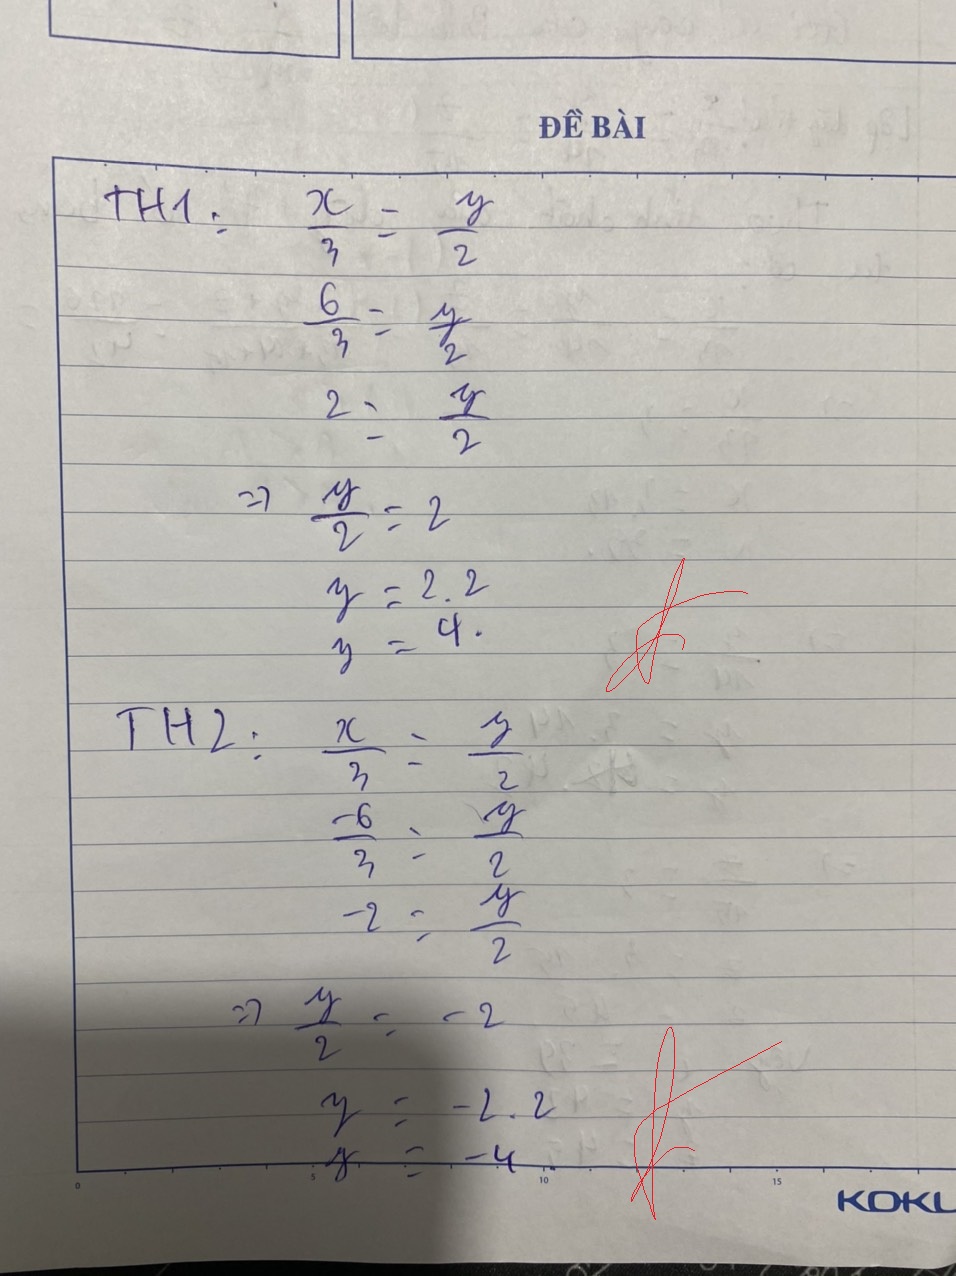 ĐỀ BÀI
TH1: x/3 = y/2
6/3 = y/2
2 = y/2
=> y/2 = 2
y = 2.2
y = 4.
TH2: x/3 = y/2
-6/3 = y/2
-2 = y/2
=> y/2 = -2
y = -2.2
y = -4
0 5 10 15
KOKU